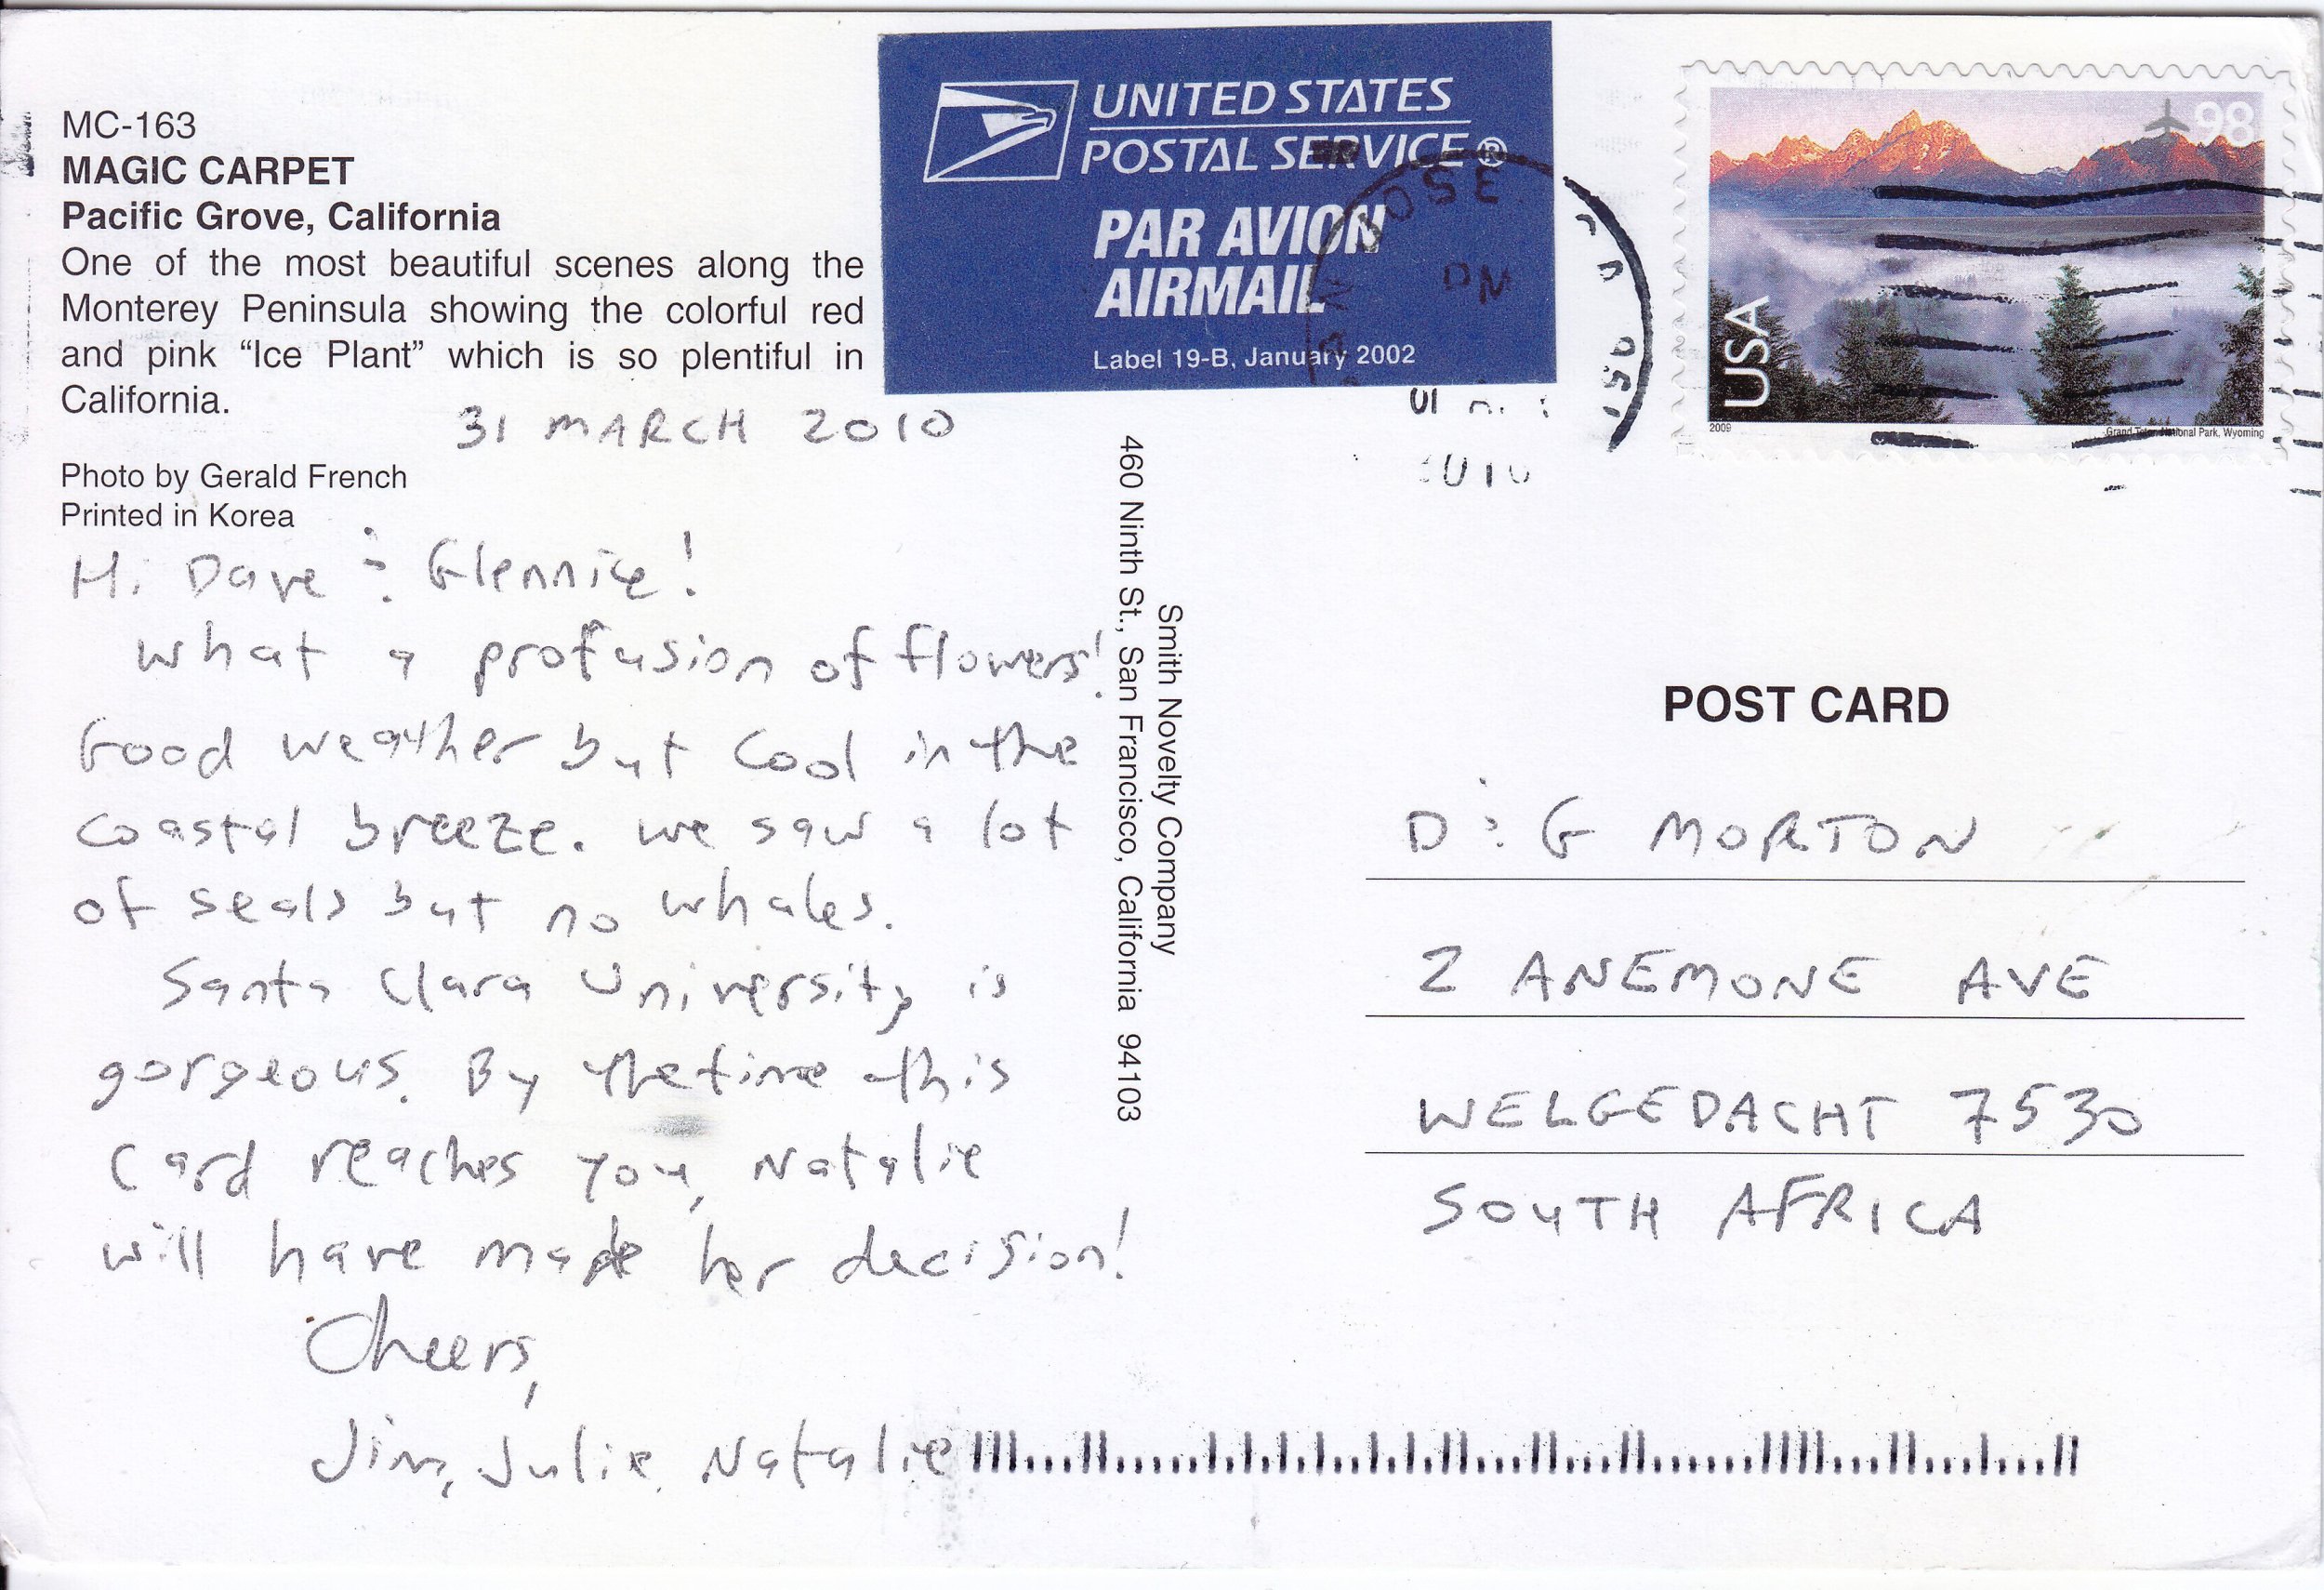 MC-163
MAGIC CARPET
Pacific Grove, California
One of the most beautiful scenes along the
Monterey Peninsula showing the colorful red
and pink “Ice Plant” which is so plentiful in
California.
31 MARCH 2010
Photo by Gerald French
Printed in Korea
Hi Dave & Glennice!
What a profusion of flowers!
Good weather but cool in the
coastal breeze. We saw a lot
of seals but no whales.
Santa Clara University is
gorgeous. By the time this
card reaches you, Natalie
will have made her decision!
Cheers,
Jim, Julie, Natalie
Smith Novelty Company
460 Ninth St., San Francisco, California 94103
UNITED STATES
POSTAL SERVICE®
PAR AVION
AIRMAIL
Label 19-B, January 2002
SAN JOSE
PM
951
2010
98
USA
2009
Grand Teton National Park, Wyoming
POST CARD
D & G MORTON
2 ANEMONE AVE
WELGEDACHT 7530
SOUTH AFRICA